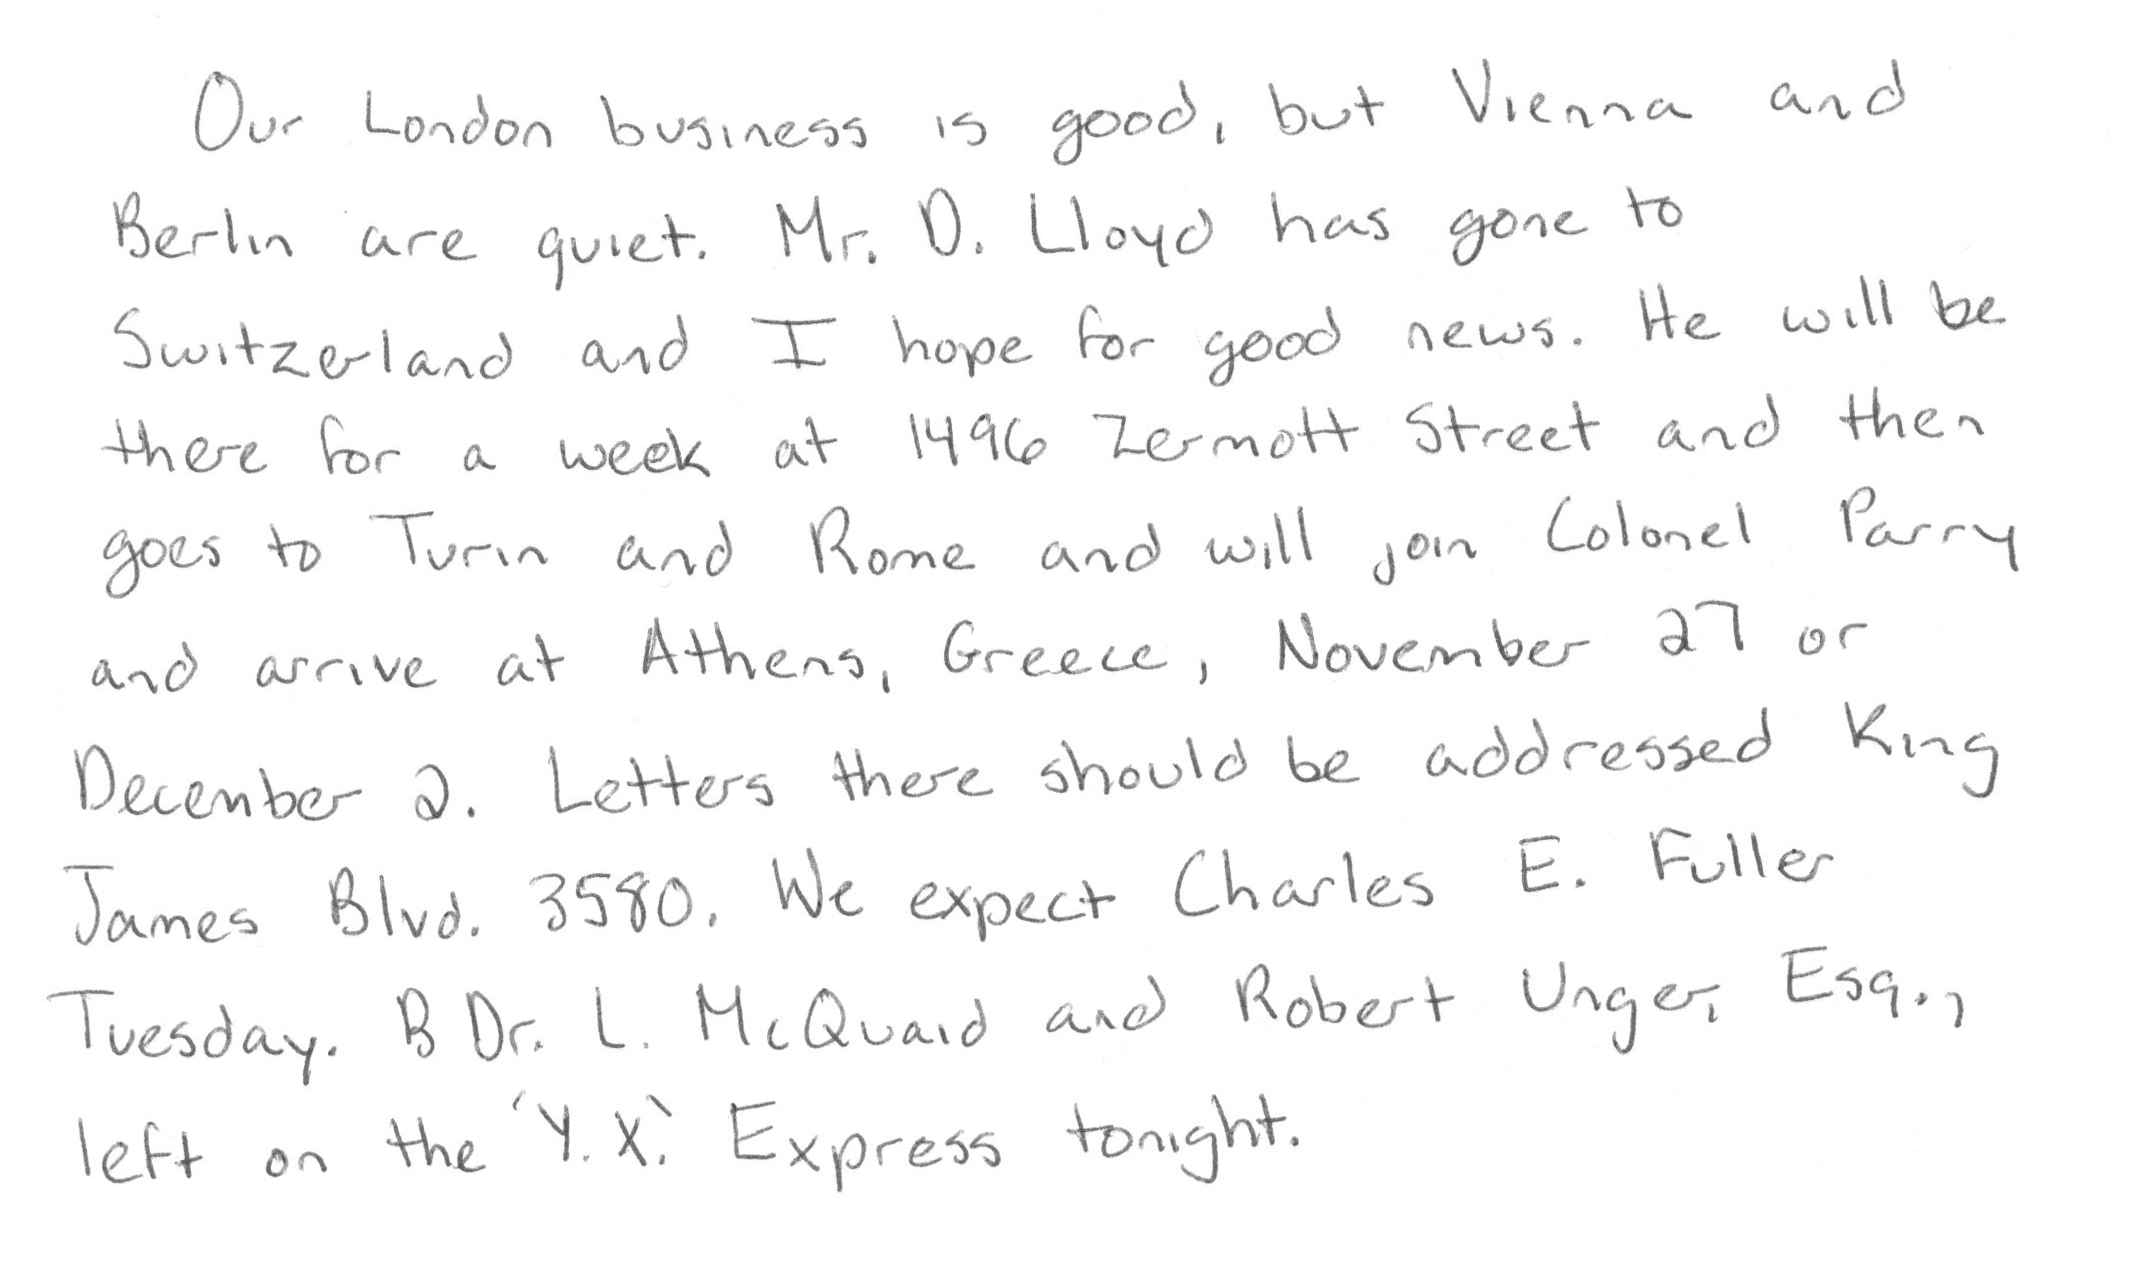 Our London business is good, but Vienna and
Berlin are quiet. Mr. D. Lloyd has gone to
Switzerland and I hope for good news. He will be
there for a week at 1496 Zermott Street and then
goes to Turin and Rome and will join Colonel Parry
and arrive at Athens, Greece, November 27 or
December 2. Letters there should be addressed King
James Blvd. 3580. We expect Charles E. Fuller
Tuesday. B Dr. L. McQuaid and Robert Unger, Esq.,
left on the 'Y.X.' Express tonight.